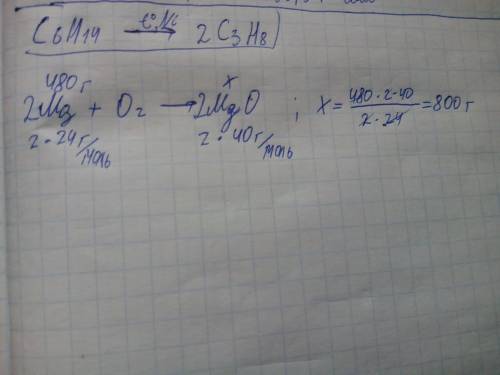 C6H14 t°, Ni → 2C3H8
480г x
2Mg + O2 → 2MgO ; X = 480·2·40 / 2·24 = 800г
2·24г/моль 2·40г/моль